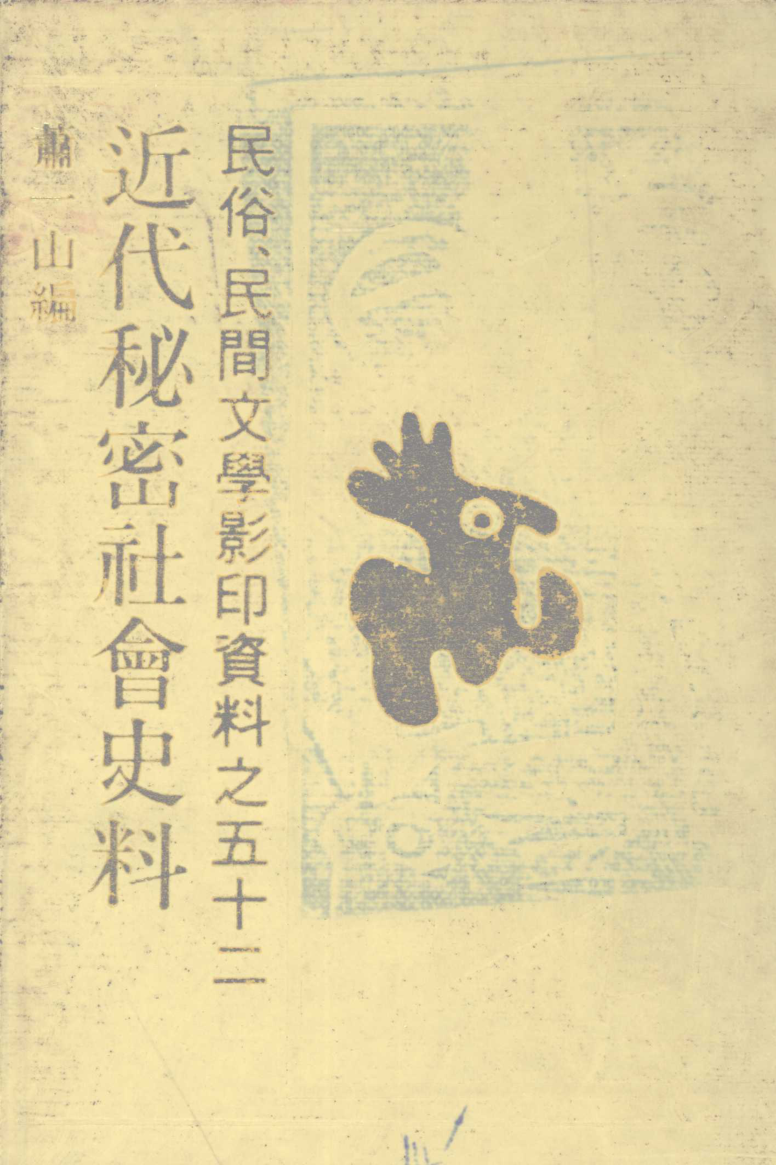 民俗、民間文學影印資料之五十二
近代秘密社會史料
蕭一山編